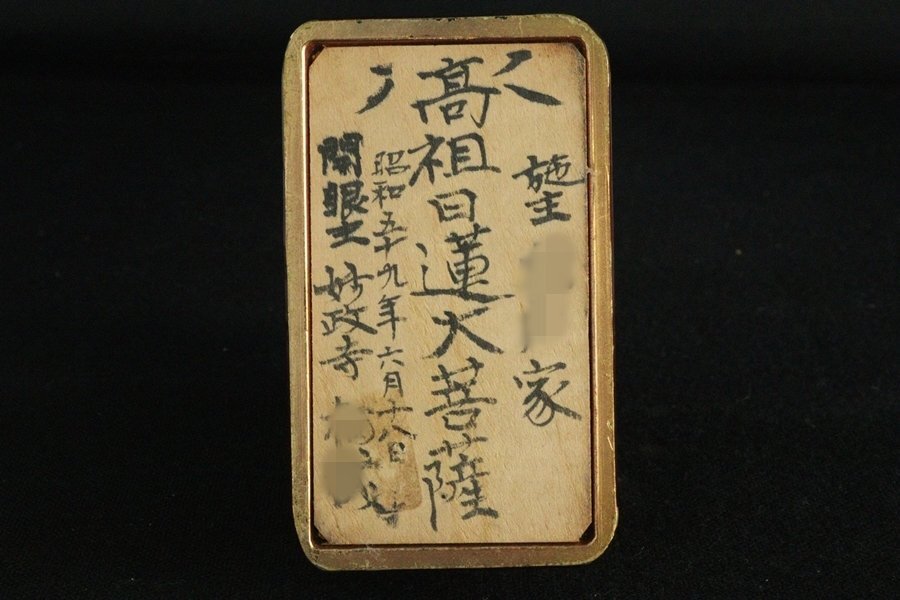 施主 家
高祖日蓮大菩薩
昭和五十九年六月十八日
開眼主 妙政寺